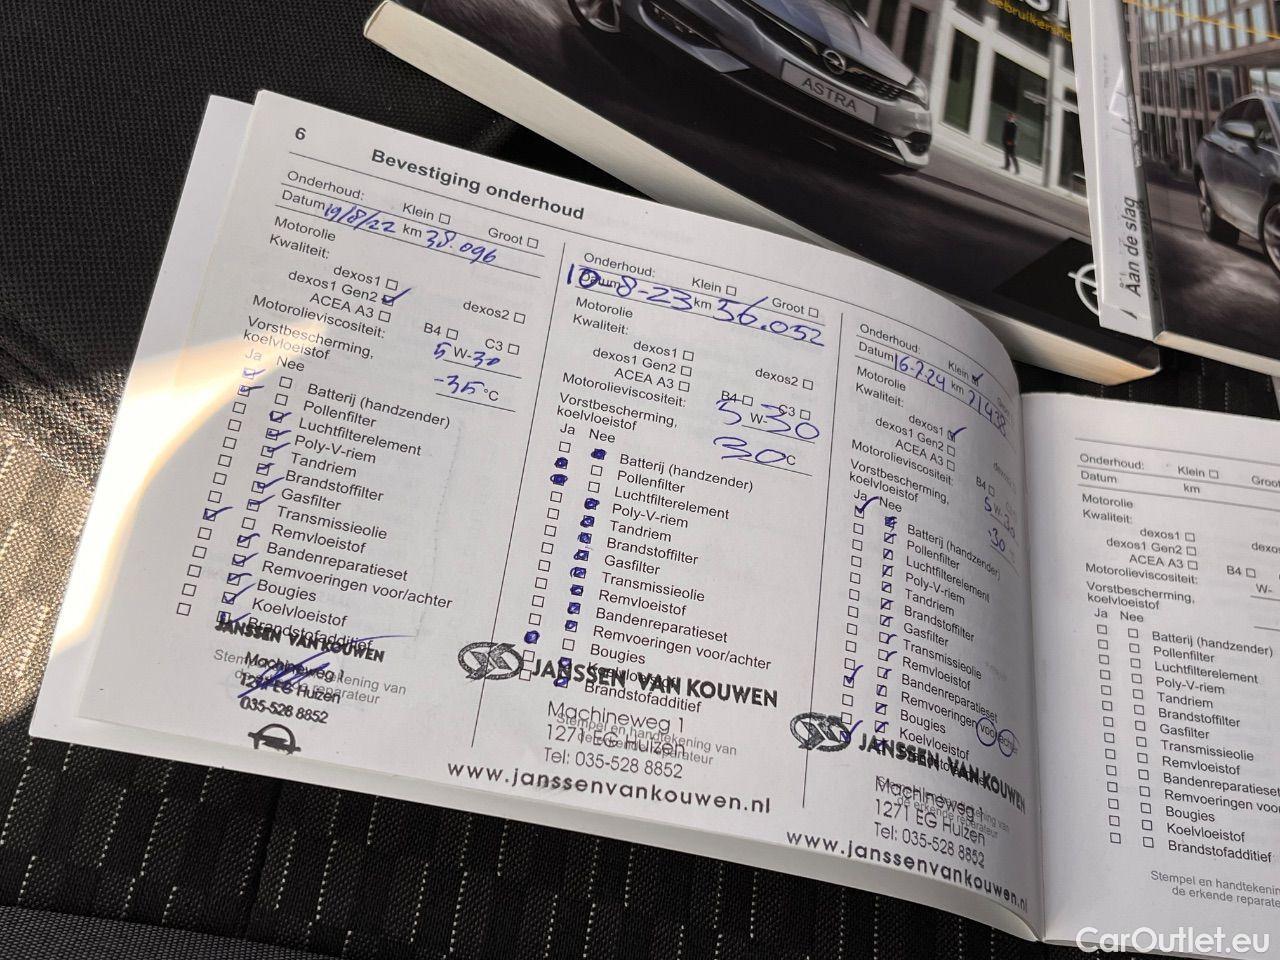 6
Bevestiging onderhoud
Onderhoud: Klein Groot
Datum 19/8/22 km 38.096
Motorolie
Kwaliteit:
dexos1
dexos2
dexos1 Gen2
ACEA A3
B4
C3
Motorolieviscositeit: 5 W-30
Vorstbescherming,
koelvloeistof
-35 °C
Ja Nee
Batterij (handzender)
Pollenfilter
Luchtfilterelement
Poly-V-riem
Tandriem
Brandstoffilter
Gasfilter
Transmissieolie
Remvloeistof
Bandenreparatieset
Remvoeringen voor/achter
Bougies
Koelvloeistof
Brandstofadditief
JANSSEN VAN KOUWEN
Machineweg 1
1271 EG Huizen
035-528 8852
Onderhoud: Klein Groot
Datum 10-8-23 km 56.052
Motorolie
Kwaliteit:
dexos1
dexos2
dexos1 Gen2
ACEA A3
B4
C3
Motorolieviscositeit: 5 W-30
Vorstbescherming,
koelvloeistof
30 C
Ja Nee
Batterij (handzender)
Pollenfilter
Luchtfilterelement
Poly-V-riem
Tandriem
Brandstoffilter
Gasfilter
Transmissieolie
Remvloeistof
Bandenreparatieset
Remvoeringen voor/achter
Bougies
Koelvloeistof
Brandstofadditief
JANSSEN VAN KOUWEN
Machineweg 1
Stempel en handtekening van
de erkende reparateur
1271 EG Huizen
Tel: 035-528 8852
www.janssenvankouwen.nl
Onderhoud: Klein
Datum 16-2-24 km
Motorolie
Kwaliteit:
dexos1
dexos1 Gen2
ACEA A3
B4
Motorolieviscositeit: 5 W-30
Vorstbescherming,
koelvloeistof
-30
Ja Nee
Batterij (handzender)
Pollenfilter
Luchtfilterelement
Poly-V-riem
Tandriem
Brandstoffilter
Gasfilter
Transmissieolie
Remvloeistof
Bandenreparatieset
Remvoeringen voor/achter
Bougies
Koelvloeistof
JANSSEN VAN KOUWEN
Machineweg 1
1271 EG Huizen
Tel: 035-528 8852
www.janssenvankouwen.nl
Onderhoud: Klein
Datum km
Motorolie
Kwaliteit:
dexos1
dexos1 Gen2
ACEA A3
B4
Motorolieviscositeit: W-
Vorstbescherming,
koelvloeistof
Ja Nee
Batterij (handzender)
Pollenfilter
Luchtfilterelement
Poly-V-riem
Tandriem
Brandstoffilter
Gasfilter
Transmissieolie
Remvloeistof
Bandenreparatieset
Remvoeringen
Bougies
Koelvloeistof
Brandstofadditief
Stempel en handtekening
de erkende
ASTRA
Aan de slag
CarOutlet.eu